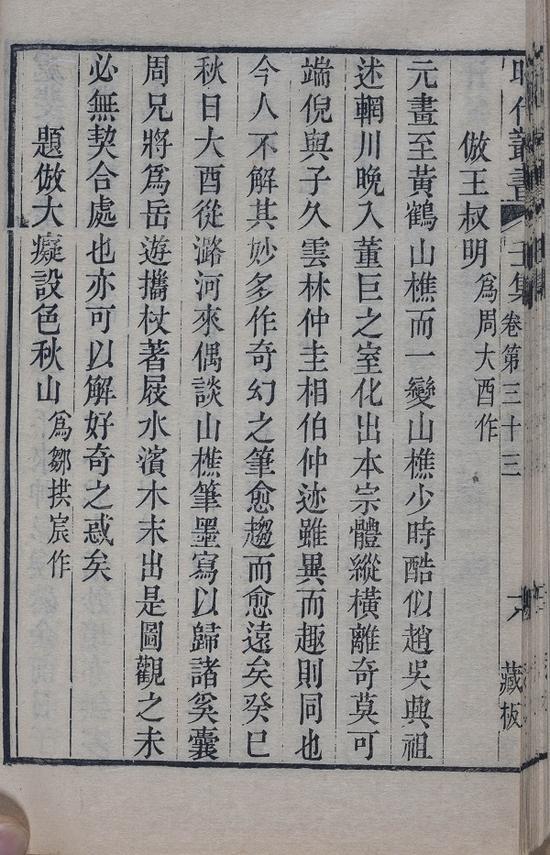 昭代叢書 壬集 卷第三十三 藏板
倣王叔明 為周大酉作
元畫至黃鶴山樵而一變山樵少時酷似趙吳興祖
述輞川晚入董巨之室化出本宗體縱橫離奇莫可
端倪與子久雲林仲圭相伯仲迹雖異而趣則同也
今人不解其妙多作奇幻之筆愈趨而愈遠矣癸巳
秋日大酉從潞河來偶談山樵筆墨寫以歸諸奚囊
周兄將為岳遊攜杖著屐水濱木末出是圖觀之未
必無契合處也亦可以解好奇之惑矣
題倣大癡設色秋山 為鄒拱宸作